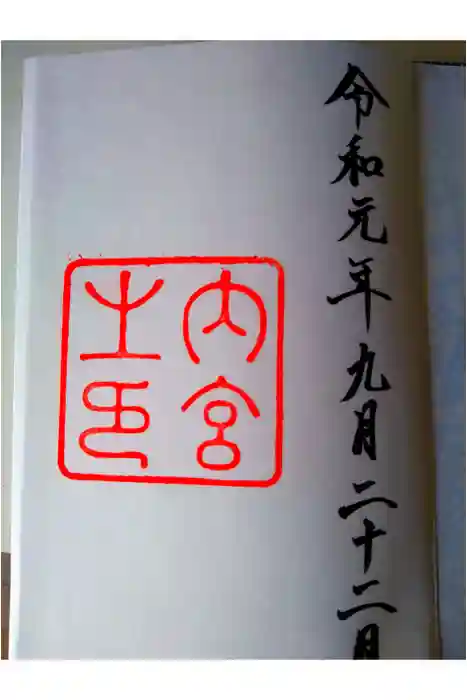 令和元年九月二十二日
内宮
之印